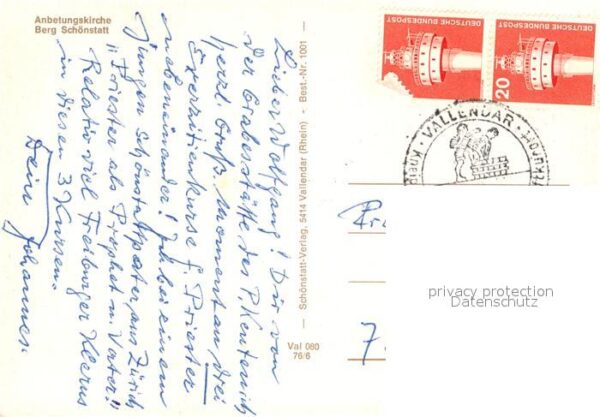 Anbetungskirche
Berg Schönstatt
Lieber Wolfgang! Dir von
der Grabesstätte des P. Kentenich
herzl. Gruß. Momentan drei
Exerzitienkurse f. Priester
nebeneinander! Ich bei einem
jungen Schönstattpater aus Zürich
"Priester als Prophet u. Vater!"
Relativ viel Freiburger Klerus
in diesen 3 Kursen.
Dein Johannes.
— Schönstatt-Verlag, 5414 Vallendar (Rhein) — Best.-Nr. 1001 —
Val 080
76/6
DEUTSCHE BUNDESPOST
DEUTSCHE BUNDESPOST
20
· VALLENDAR ·
privacy protection
Datenschutz
7